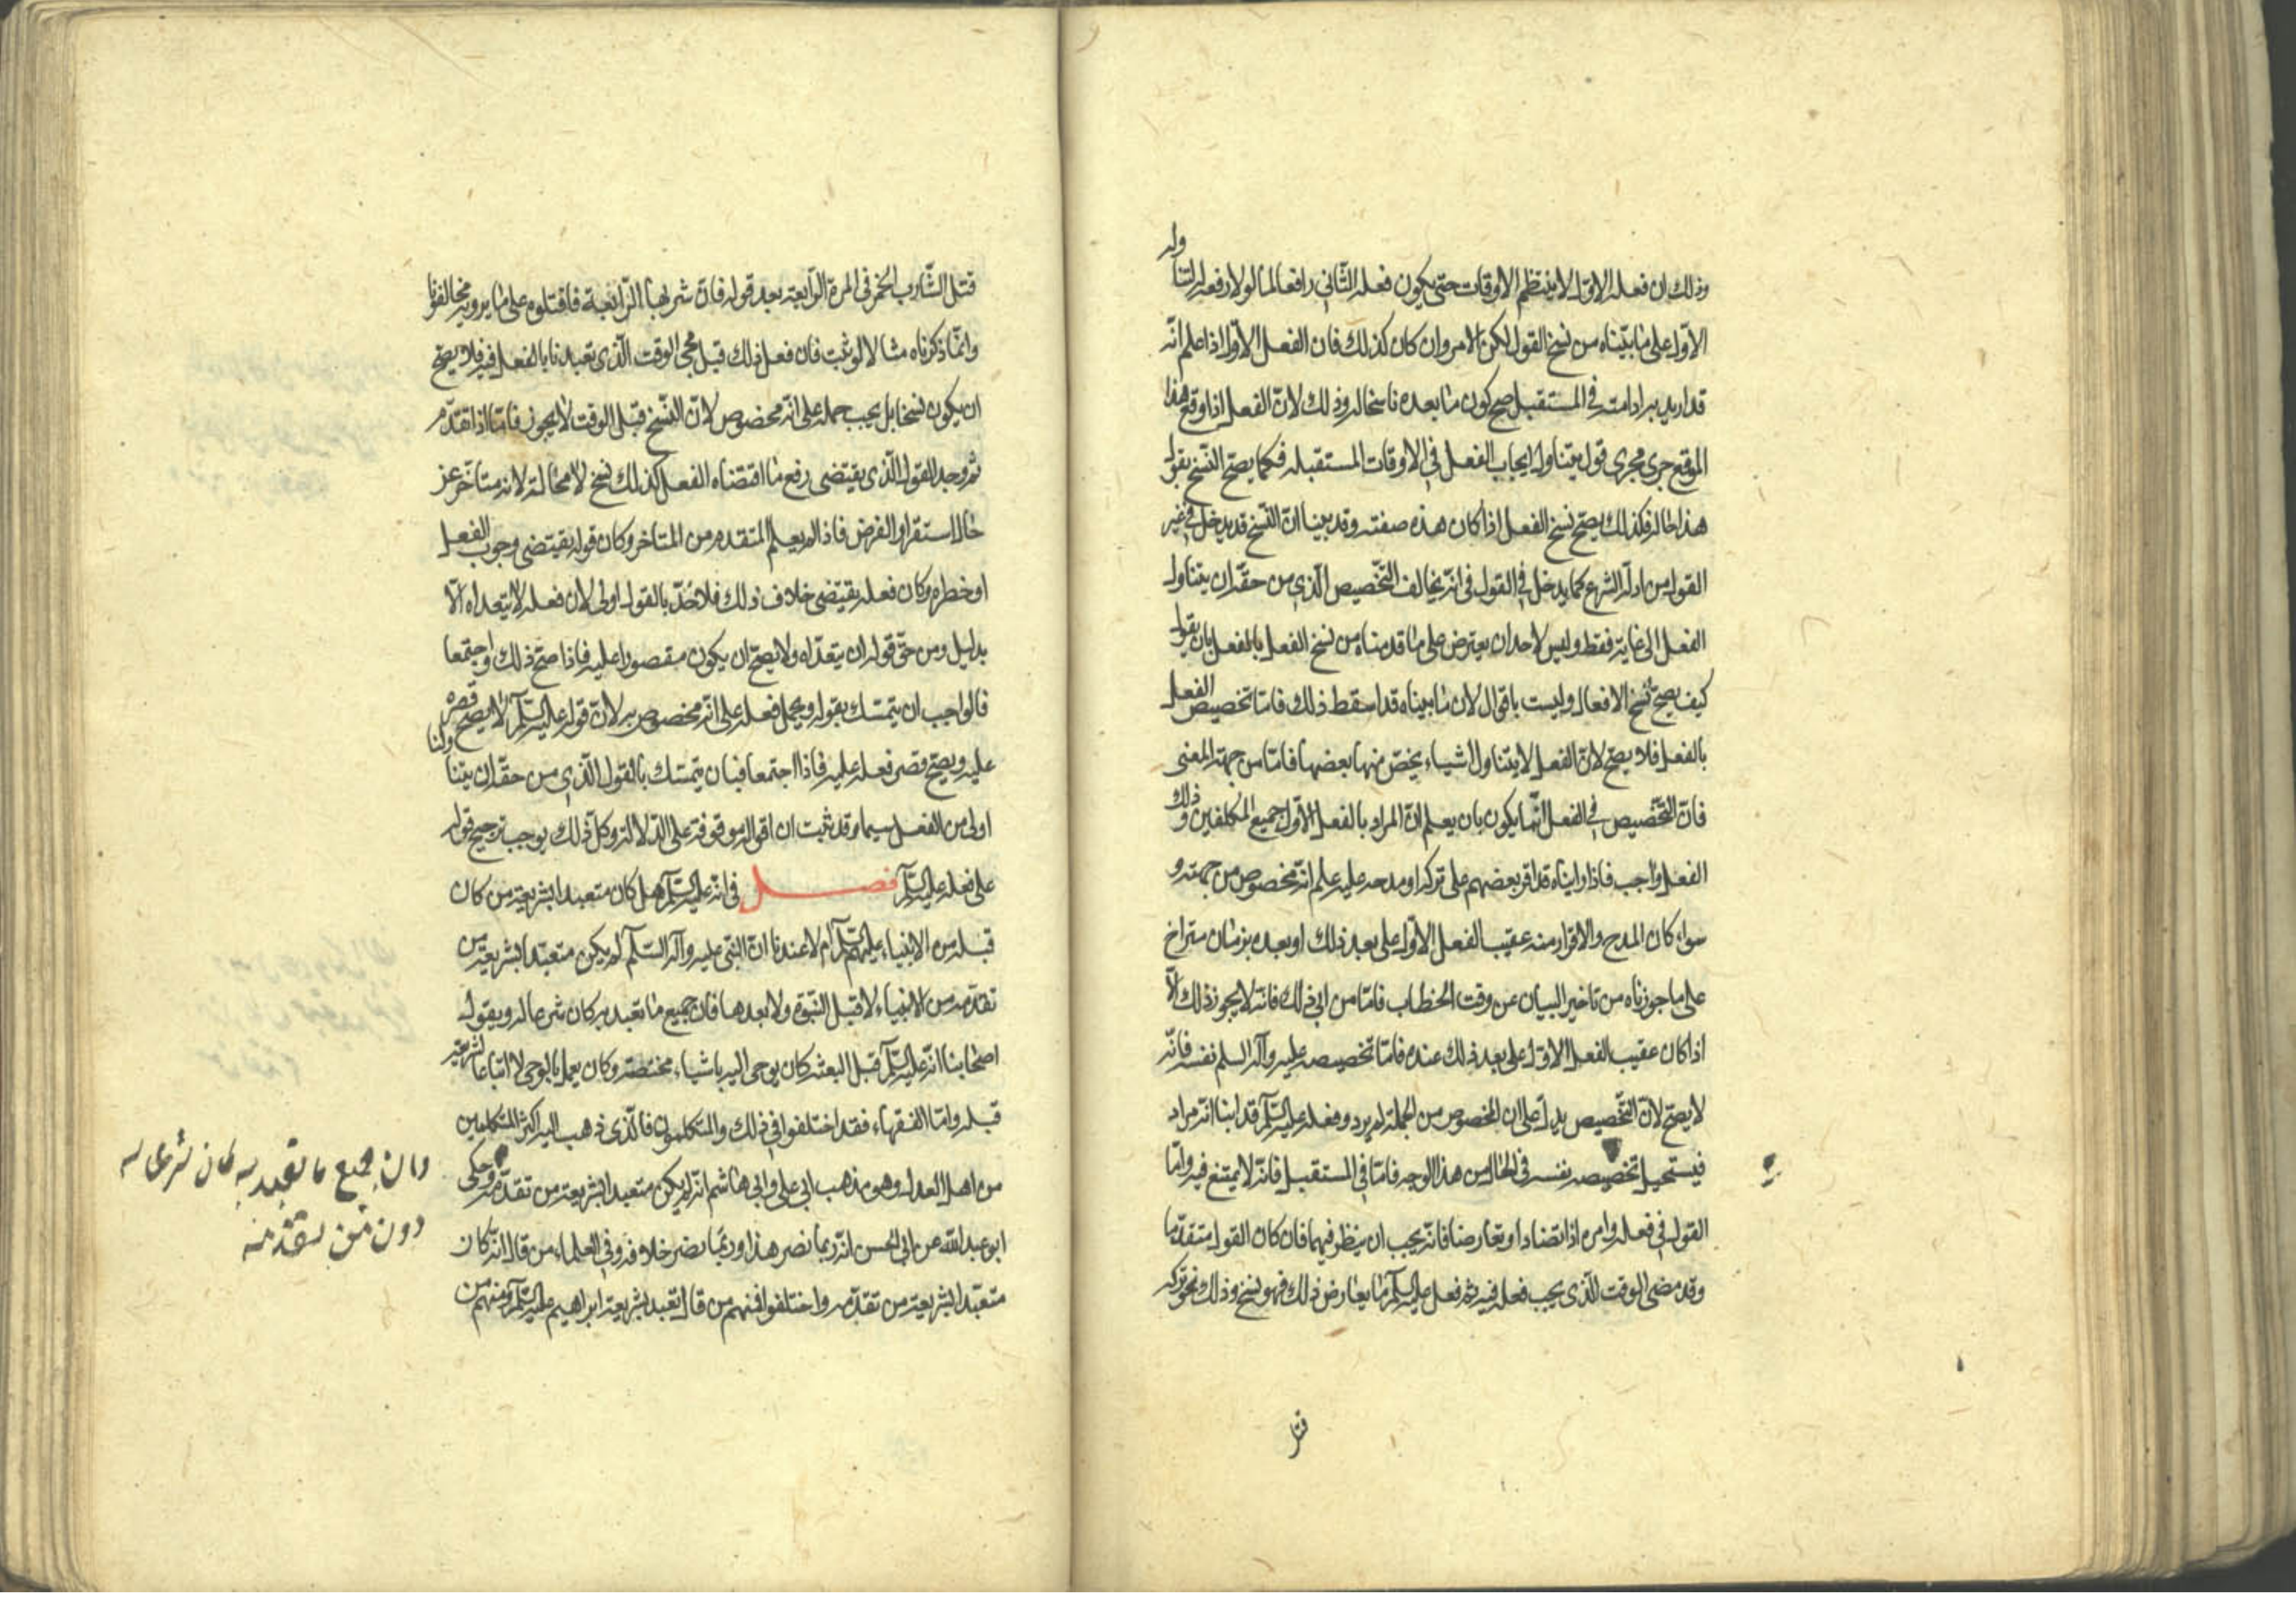 وذلك ان فعله الاول لا ينتظم الاوقات حتى يكون فعله الثاني رافعا لما لولا رفعه لتناوله
الاول على ما بيّناه من نسخ القول لكن الامر وان كان كذلك فان الفعل الاول اذا علم انّه
قد اريد به ادامته في المستقبل صح كون ما بعده ناسخا له وذلك لانّ الفعل اذا وقع هذا
الموقع جرى مجرى قول يتناول ايجاب الفعل في الاوقات المستقبله فكما يصح النسخ بقول
هذا حاله فكذلك يصح نسخ الفعل اذا كان هذه صفته وقد بينا انّ النسخ قد يدخل في غير
القول من ادلّه الشرع كما يدخل في القول في انّه يخالف التخصيص الذي من حقّه ان يتناول
الفعل الى غايه فقط وليس لاحد ان يعترض على ما قدمناه من نسخ الفعل بالفعل بان يقول
كيف يصح نسخ الافعال وليست باقوال لان ما بيناه قد اسقط ذلك فامّا تخصيص الفعل
بالفعل فلا يصحّ لانّ الفعل لا يتناول اشياء يخصّ منها بعضها فامّا من جهة المعنى
فانّ التخصيص في الفعل انّما يكون بان يعلم انّ المراد بالفعل الاوّل جميع المكلفين وذلك
الفعل واجب فاذا راينا قد اقر بعضهم على تركه او مدحه عليه علم انّه مخصوص من جهته و
سواء كان المدح والاقرار منه عقيب الفعل الاوّل على بعد ذلك او بعده بزمان متراخ
على ما جوزناه من تاخير البيان عن وقت الخطاب فامّا من ابى ذلك فانّه لا يجوز ذلك الّا
اذا كان عقيب الفعل الاول على بعد ذلك عنده فامّا تخصيصه عليه وآله السلم نفسه فانّه
لا يصحّ لانّ التخصيص يدلّ على ان المخصوص من الجملة لم يرد وفعله عليه السلم قد ابنا انّه مراد
فيستحيل تخصيصه نفسه في الحال من هذا الوجه فامّا في المستقبل فانّه لا يمتنع فيه وامّا
القول في فعله وامره اذا تضادا او تعارضا فانّه يجب ان ينظر فيهما فان كان القول متقدّما
وقد مضى الوقت الّذي يجب فعله فيه ثم فعل عليه السلم ما يعارض ذلك فهو نسخ وذلك نحو تركه
قتل
قتل الشّارب الخمر في المرة الرّابعة بعد قوله فانّ شربها الرّابعة فاقتلوه على ما يرويه مخالفونا
وانّما ذكرناه مثالا لو ثبت فان فعل ذلك قبل مجى الوقت الّذي تعبدنا بالفعل فيه فلا يصحّ
ان يكون نسخا بل يجب حمله على انّه مخصوص لانّ النّسخ قبل الوقت لا يجوز فامّا اذا تقدّم
ثم وجد القول الّذي يقتضى رفع ما اقتضاه الفعل فذلك نسخ لا محالة لانه متاخّر عن
حال استقرار الفرض فاذا لم يعلم المتقدم من المتاخر وكان قوله يقتضى وجوب الفعل
او خطره وكان فعله يقتضى خلاف ذلك فالاخذ بالقول اولى لان فعله لا يتعداه الّا
بدليل ومن حقّ قوله ان يتعدّاه ولا يصحّ ان يكون مقصورا عليه فاذا صحّ ذلك واجتمعا
فالواجب ان يتمسّك بقوله ويحمل فعله على انّه مخصوص به لانّ قوله عليه السلم لا يصح قصره
عليه ويصحّ قصر فعله عليه فاذا اجتمعا فبان يتمسّك بالقول الّذي من حقّه ان يتناولنا
اولى من الفعل سيما وقد ثبت ان اقواله موقوفة على الدّلالة وكلّ ذلك يوجب ترجيح قوله
على فعله عليه السلم فصل في انّه عليه السلم هل كان متعبدا بشريعة من كان
قبله من الانبياء عليهم السلم ام لا عندنا انّ النّبي عليه وآله السّلم لم يكن متعبّدا بشريعة من
تقدّمه من الانبياء لا قبل النّبوّة ولا بعدها فانّ جميع ما تعبد به كان شرعا له ويقول
اصحابنا انّه عليه السلم قبل البعثه كان يوحى اليه باشياء مختصّه وكان يعمل بالوحي لا اتباعا لشريعه
قبله وامّا الفقهاء فقد اختلفوا في ذلك والمتكلمون فالّذي ذهب اليه اكثر المتكلمين
من اهل العدل وهو مذهب ابي على وابي هاشم انّه لم يكن متعبدا بشريعة من تقدّمه وحكى
ابو عبد الله عن ابي الحسن انّه ربما نصر هذا وربّما نصر خلافه وفي العلماء من قال انّه كان
متعبّدا بشريعة من تقدّمه واختلفوا فمنهم من قال تعبد بشريعة ابراهيم عليه السلم ومنهم من
وان جميع ما تعبد به كان شرعا له
دون من تقدمه